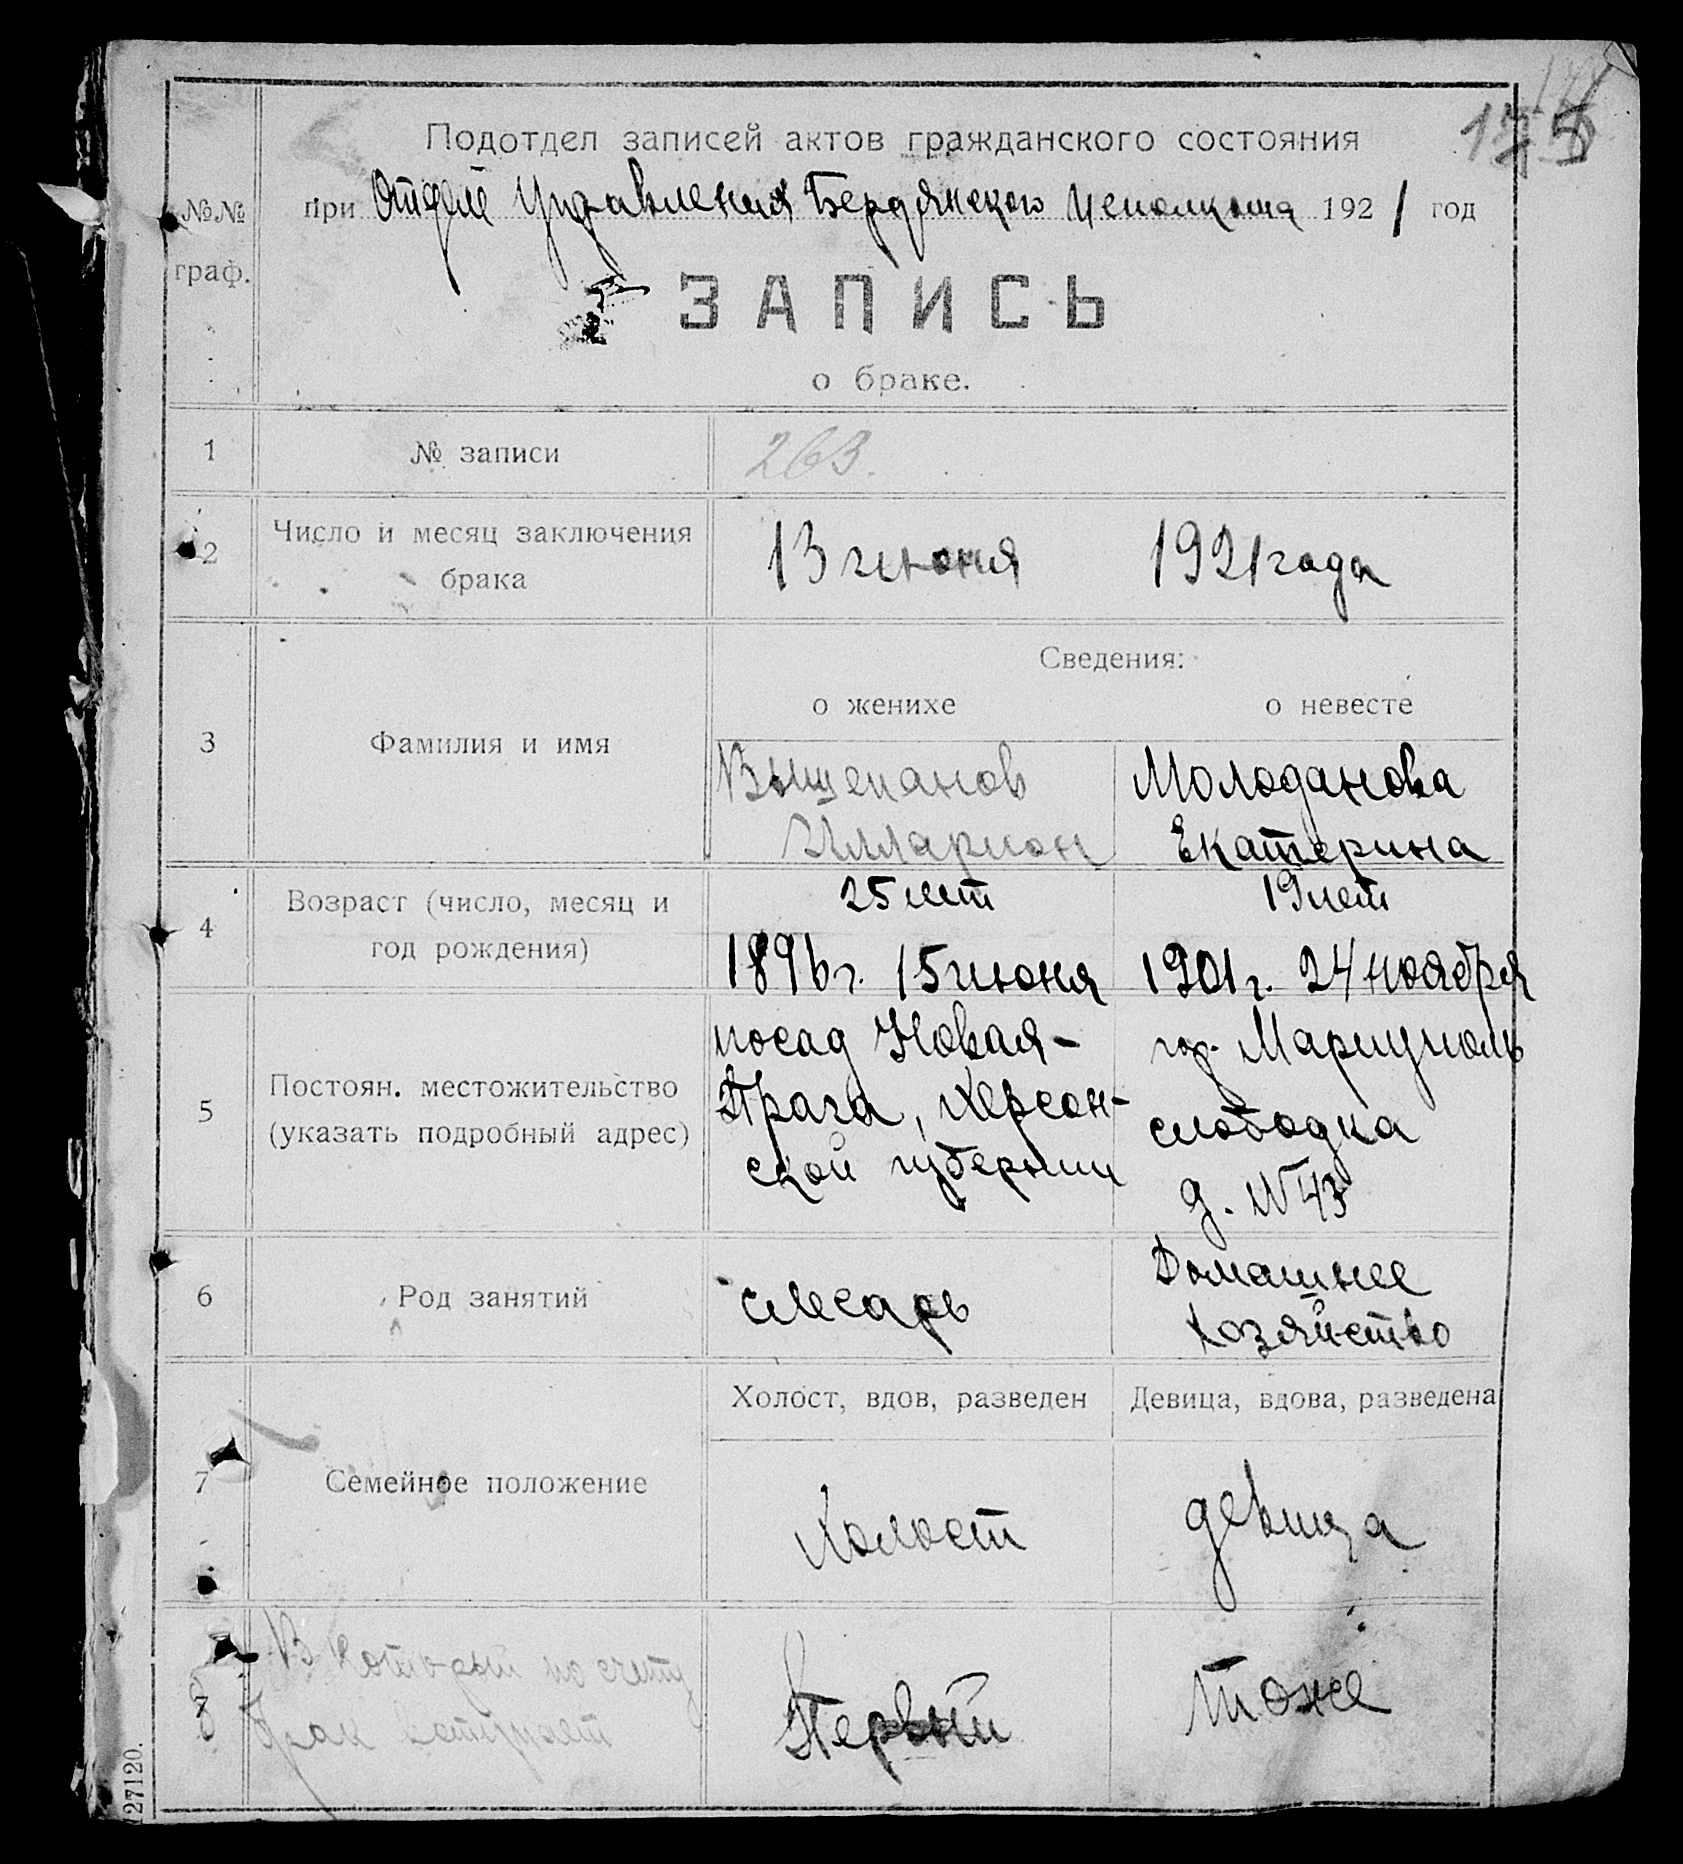 175
Подотдел записей актов гражданского состояния
№№ граф.
при Отделе Управления Бердянского Исполкома 1921 год
ЗАПИСЬ
о браке.
1 № записи 263.
2 Число и месяц заключения брака
13 июня 1921 года
Сведения:
о женихе о невесте
3 Фамилия и имя
Вощепанов Молоданова
Илларион Екатерина
4 Возраст (число, месяц и год рождения)
25 лет 19 лет
1896 г. 15 июня 1901 г. 24 ноября
5 Постоян. местожительство
(указать подробный адрес)
посад Новая-
Прага, Херсон-
ской губернии
гор. Мариуполь
слободка
д. № 43
6 Род занятий
слесарь
Домашнее
хозяйство
Холост, вдов, разведен Девица, вдова, разведена
7 Семейное положение
Холост девица
8 В который по счету
брак вступает
Первый тоже
27120.